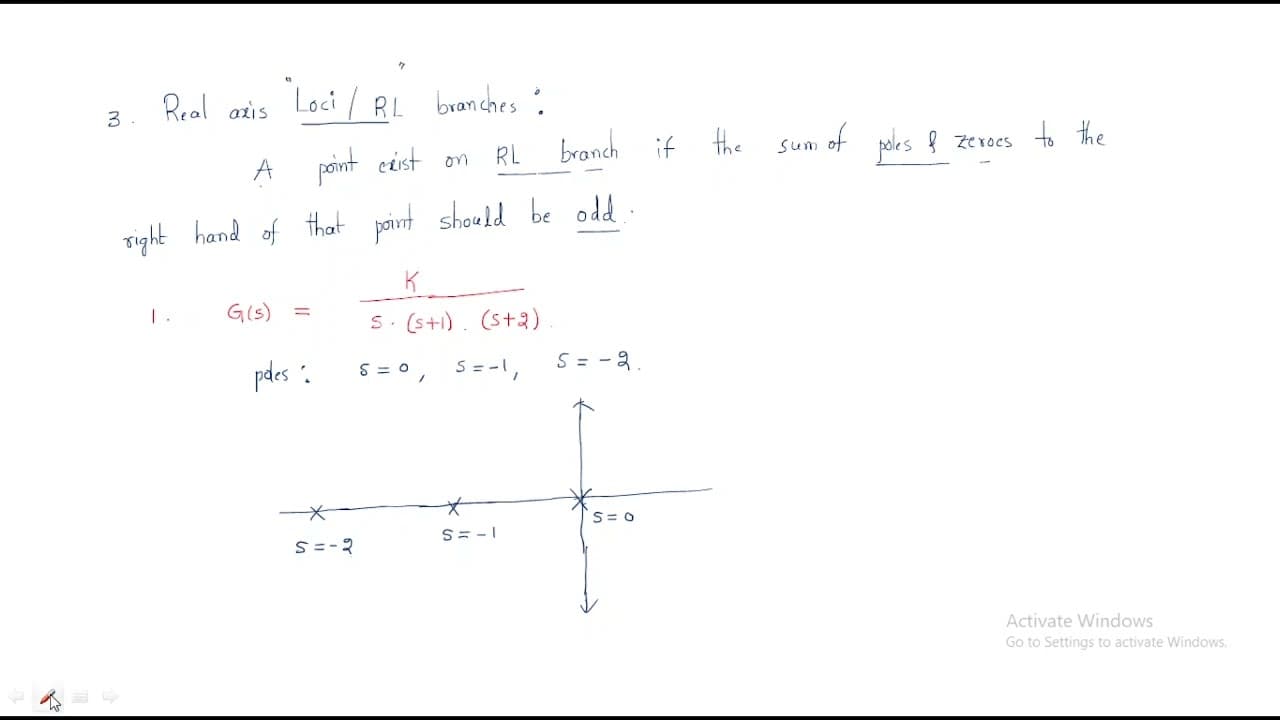 3. Real axis "Loci / RL" branches :
A point exist on RL branch if the sum of poles & zeroes to the
right hand of that point should be odd.
K
1. G(s) = 
s. (s+1). (s+2).
poles : s = 0, s = -1, s = -2.
s = 0
s = -1
s = -2
Activate Windows
Go to Settings to activate Windows.